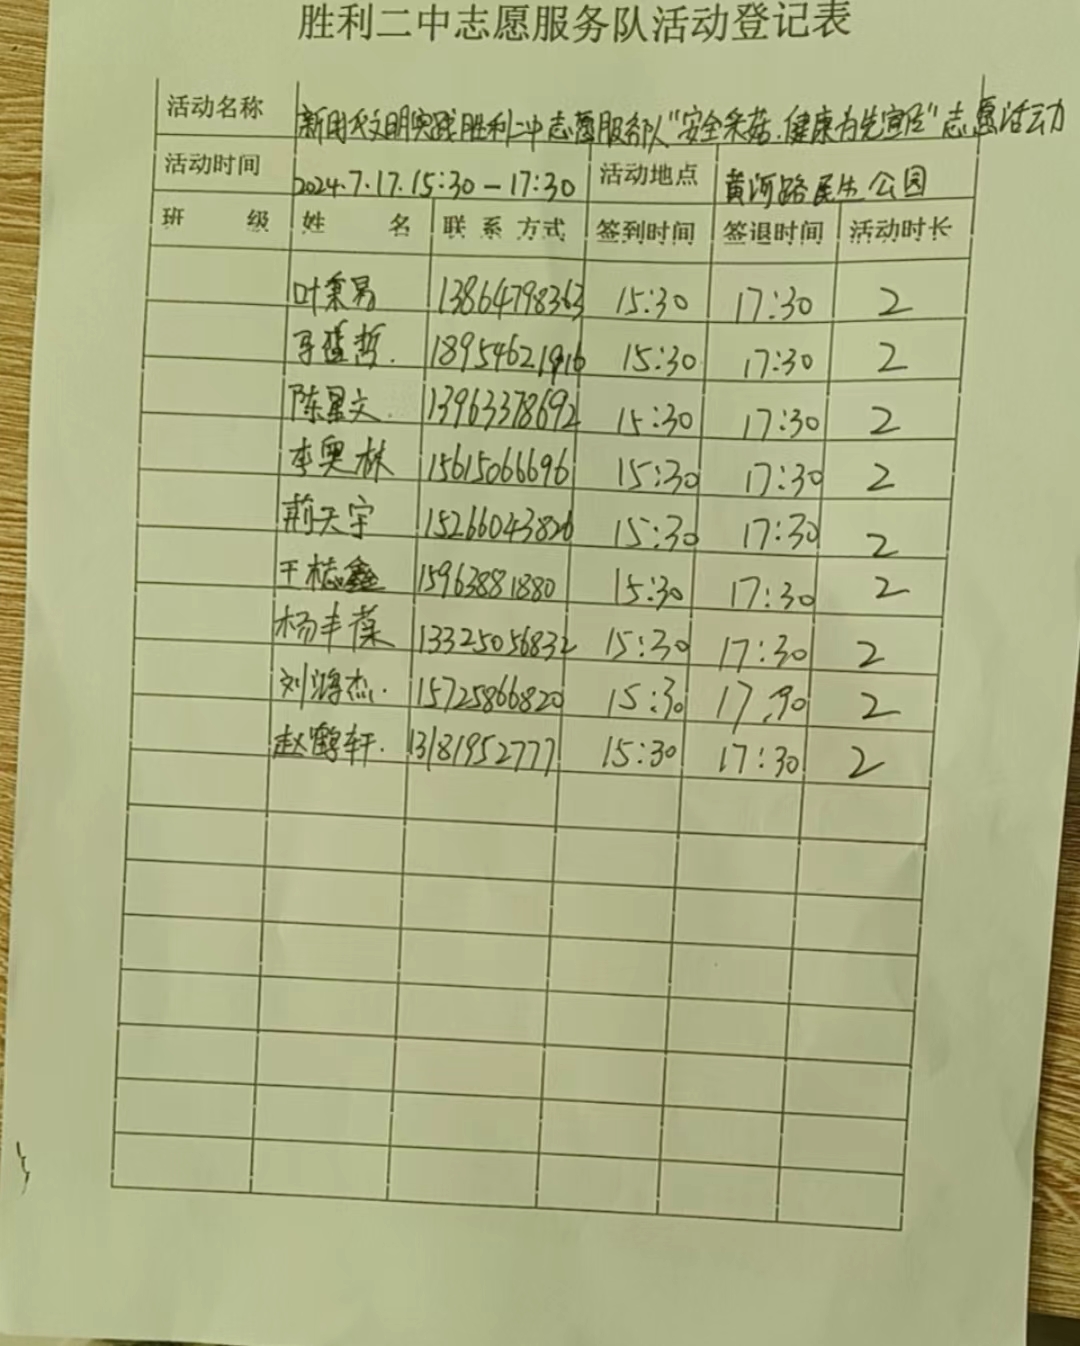 胜利二中志愿服务队活动登记表
活动名称 新时代文明实践胜利二中志愿服务队“安全采菇.健康为先宣传”志愿活动
活动时间 2024.7.17.15:30-17:30 活动地点 黄河路民生公园
班级 姓名 联系方式 签到时间 签退时间 活动时长
叶秉易 13864798363 15:30 17:30 2
哲 18954621916 15:30 17:30 2
陈星文 13963378692 15:30 17:30 2
李奥林 15615066696 15:30 17:30 2
荊天宇 15266043826 15:30 17:30 2
王梽鑫 15963881880 15:30 17:30 2
杨丰葆 13325056832 15:30 17:30 2
刘鸿杰 15725866820 15:30 17:30 2
赵鹤轩 13181952777 15:30 17:30 2